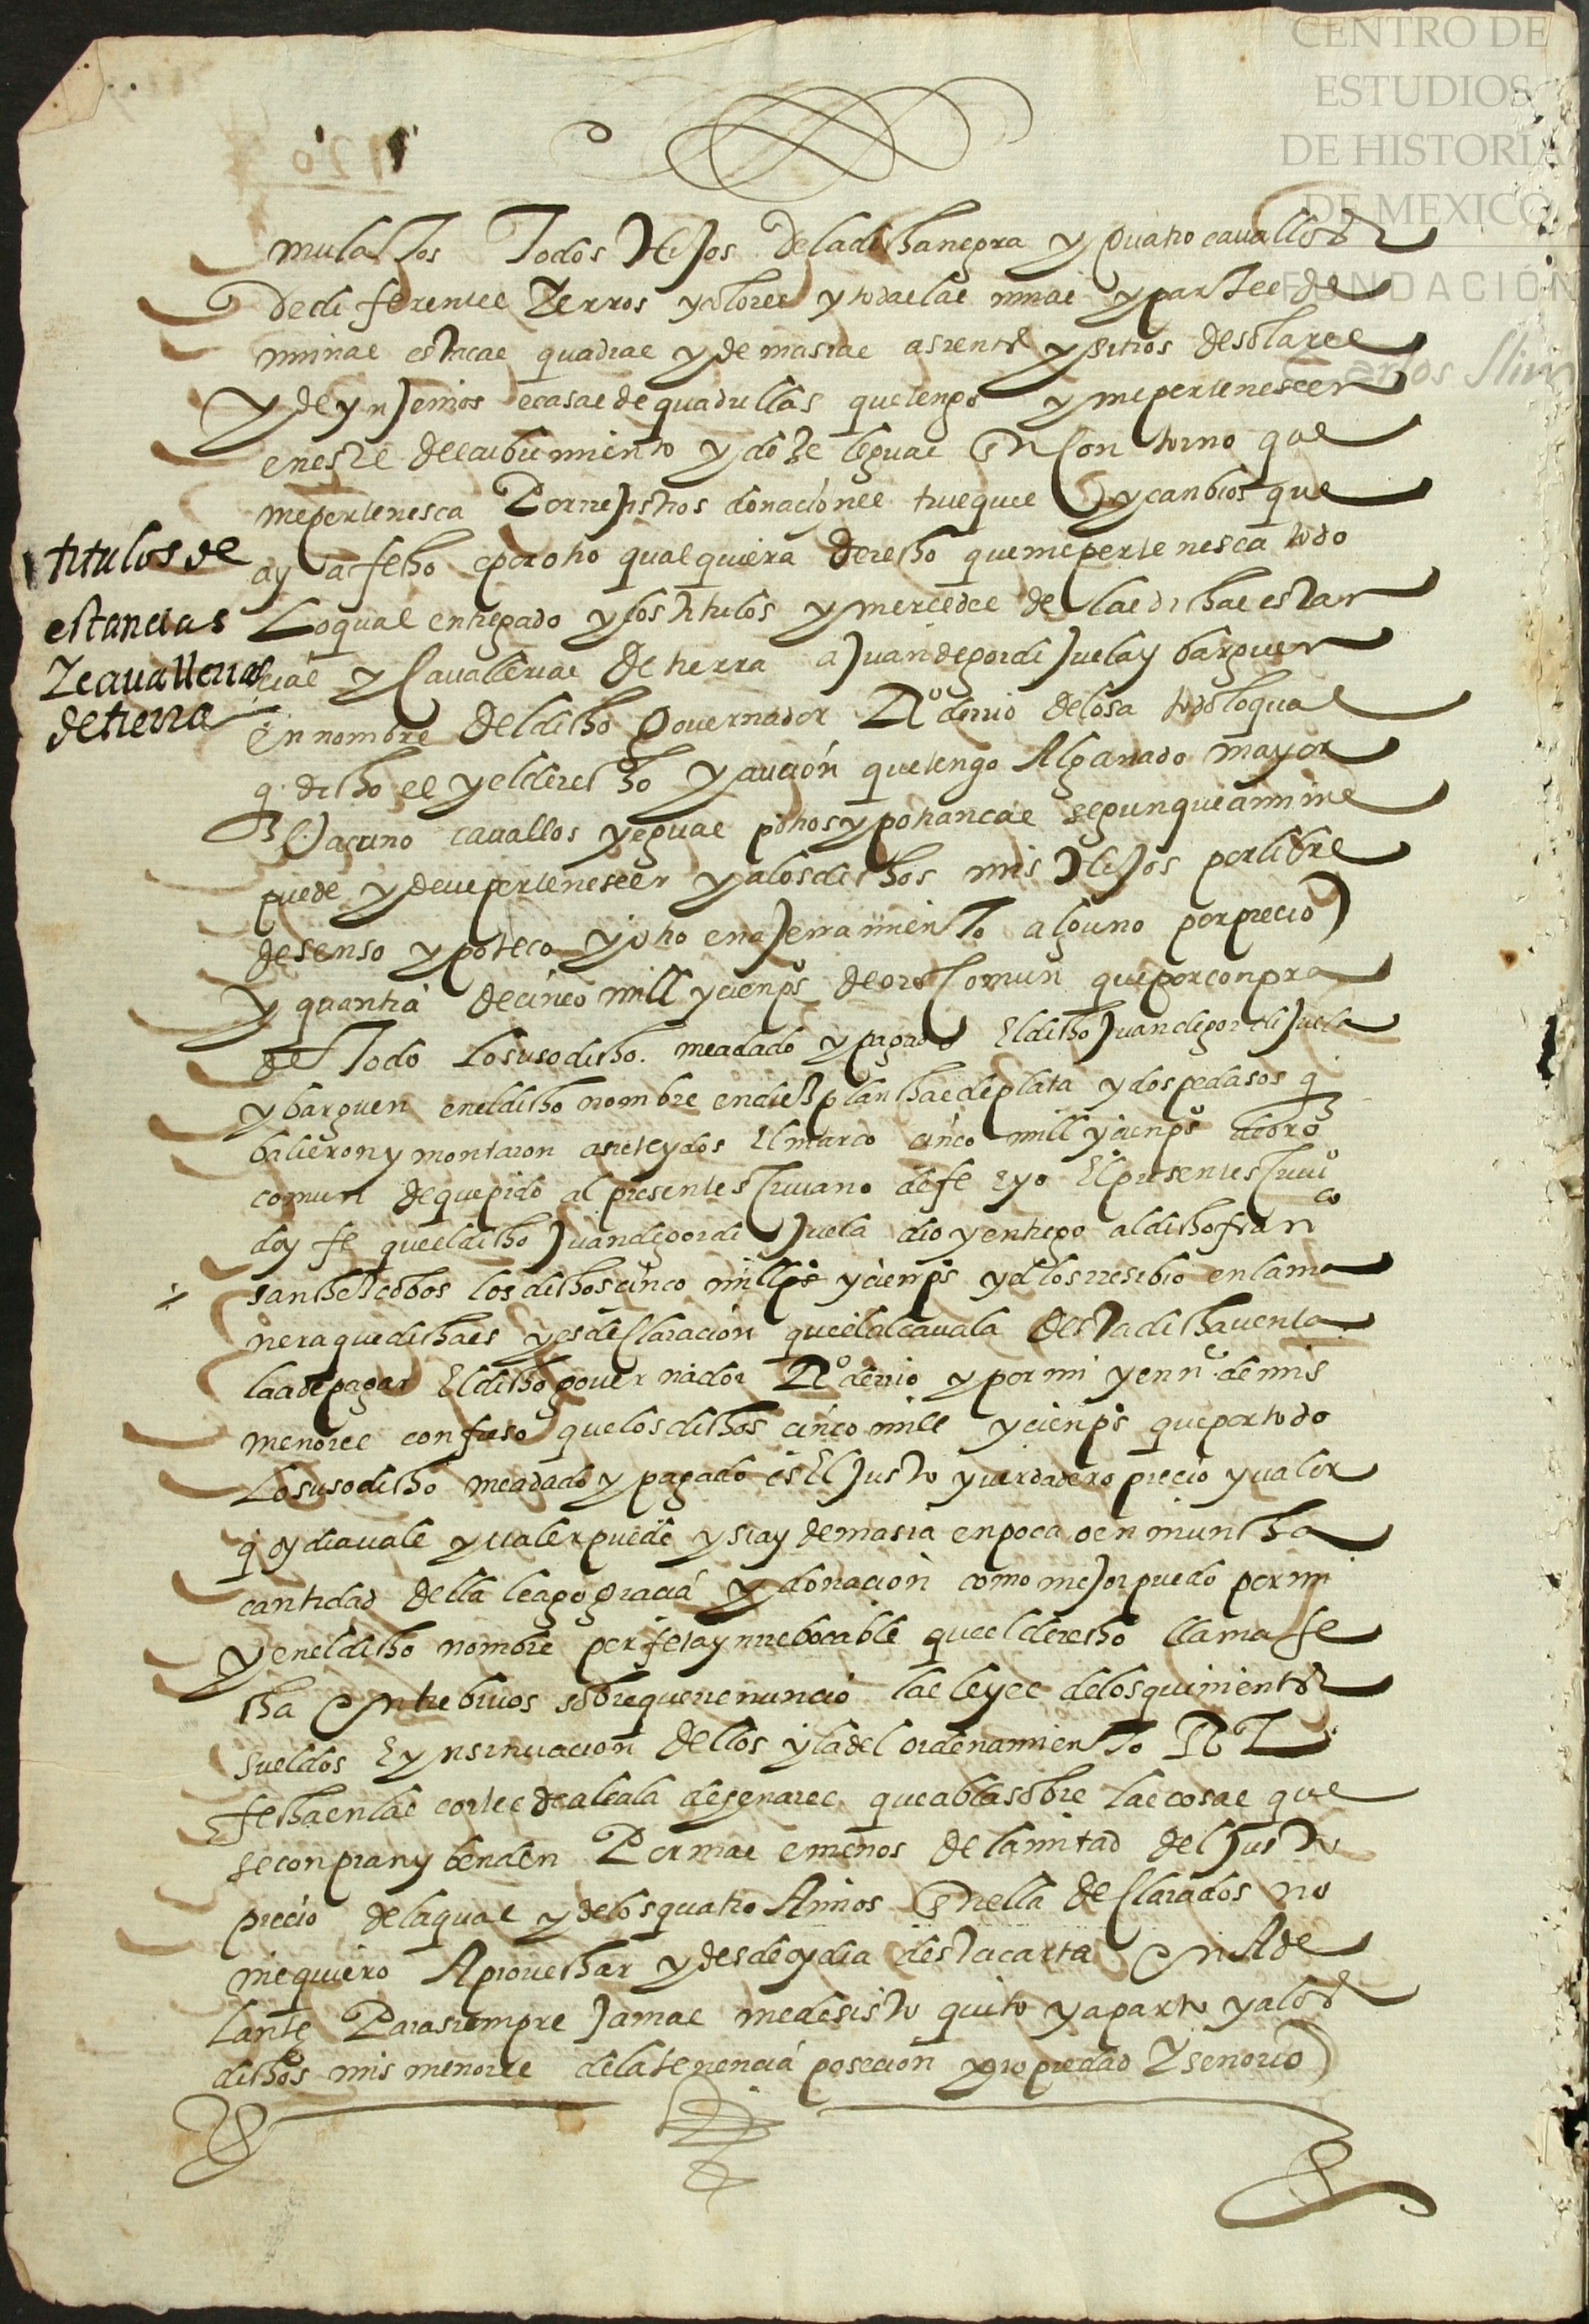 CENTRO DE
ESTUDIOS
DE HISTORIA
DE MEXICO
FUNDACIÓN
Carlos Slim
mulattos todos hijos de la dicha negra y quatro cavallos
de diferentes yerros y colores y todas las minas y partes de
minas estacas quadras y demasias asientos y sitios de solares
y de ynjenios e casas de quadrillas que tengo y me pertenescen
en este descubrimiento y doze leguas en contorno que
me pertenesca por rejistros donaciones trueques y canbios que
aya fecho e por otro qualquiera derecho que me pertenesca todo
titulos de
estancias
y cavallerias
de tierra
lo qual entregado y los titulos y mercedes de las dichas estan
cias y cavallerias de tierra a juan de gordijuela ybarguen
en nombre del dicho governador Rº de rrio de losa todo lo qual
q dicho es y el derecho y aucion que tengo al ganado mayor
vacuno cavallos yeguas potros y potrancas segun que a mi me
puede y deve pertenescer y a los dichos mis hijos por libre
de senso ypoteco y otro enajenamiento alguno por precio
y quantia de cinco mill y cien pºs de oro comun que por conpra
de todo lo susodicho me a dado y pagado el dicho juan de gordijuela
ybarguen en el dicho nombre en diez planchas de plata y dos pedasos q
balieron y montaron a siete y dos el marco cinco mill y cien pºs de oro
comun de que pido al presente scrivano de fe e yo el presente scrivº
doy fe que el dicho juan de gordijuela dio y entrego al dicho franco
sanchez cobos los dichos cinco mill pºs y cien pºs y el los rresibio en la ma
nera que dicha es y es declaracion que el alcavala desta dicha venta
la a de pagar el dicho governador Rº de rrio y por mi y en ne de mis
menores confieso que los dichos cinco mill y cien pºs que por todo
lo susodicho me a dado y pagado es el justo y verdadero precio y valor
q oy dia vale y valer puede y si ay demasia en poca o en muncha
cantidad della le ago gracia y donacion como mejor puedo por mi
y en el dicho nombre perfeta ynrrebocable que el derecho llama fe
cha entre bivos sobre que rrenuncio las leyes de los quinientos
sueldos e ynsinuacion dellos y la del ordenamiento Rl
fecha en las cortes de alcala de genares que abla sobre las cosas que
se conpran y benden por mas e menos de la mitad del justo
precio de la qual y de los quatro Años en ella declarados no
me quiero Aprovechar y desde oy dia desta carta en Ade
lante para siempre jamas me desisto quito y aparto y a los
dichos mis menores de la tenencia posecion y propiedad y senorio